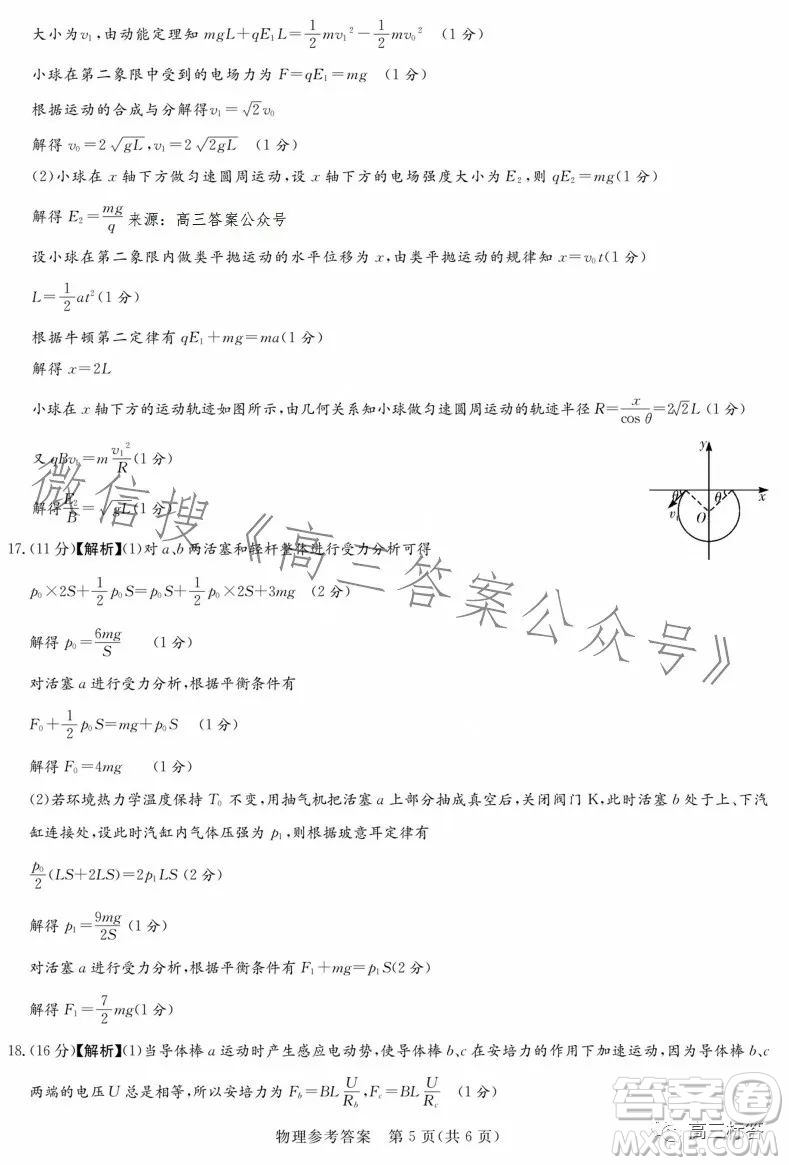 大小为v₁,由动能定理知 mgL+qE₁L=1/2 mv₁²-1/2 mv₀² (1分)
小球在第二象限中受到的电场力为 F=qE₁=mg (1分)
根据运动的合成与分解得v₁=√2v₀
解得 v₀=2√gL,v₁=2√2gL (1分)
(2)小球在 x 轴下方做匀速圆周运动,设 x 轴下方的电场强度大小为 E₂,则 qE₂=mg(1分)
解得 E₂=mg/q 来源:高三答案公众号
设小球在第二象限内做类平抛运动的水平位移为 x,由类平抛运动的规律知 x=v₀t(1分)
L=1/2 at²(1分)
根据牛顿第二定律有 qE₁+mg=ma(1分)
解得 x=2L
小球在 x 轴下方的运动轨迹如图所示,由几何关系知小球做匀速圆周运动的轨迹半径 R=x/cos θ=2√2L (1分)
又 qBv₁=m v₁²/R(1分)
解得E₂/B=√gL(1分)
y
θ θ x
v₁ O
17.(11分)【解析】(1)对 a、b 两活塞和轻杆整体进行受力分析可得
p₀×2S+1/2 p₀S=p₀S+1/2 p₀×2S+3mg (2分)
解得 p₀=6mg/S (1分)
对活塞 a 进行受力分析,根据平衡条件有
F₀+1/2 p₀S=mg+p₀S (1分)
解得 F₀=4mg (1分)
(2)若环境热力学温度保持 T₀ 不变,用抽气机把活塞 a 上部分抽成真空后,关闭阀门 K,此时活塞 b 处于上、下汽
缸连接处,设此时汽缸内气体压强为 p₁,则根据玻意耳定律有
p₀/2(LS+2LS)=2p₁LS(2分)
解得 p₁=9mg/2S(1分)
对活塞 a 进行受力分析,根据平衡条件有 F₁+mg=p₁S(2分)
解得 F₁=7/2 mg(1分)
18.(16分)【解析】(1)当导体棒 a 运动时产生感应电动势,使导体棒 b、c 在安培力的作用下加速运动,因为导体棒 b、c
两端的电压 U 总是相等,所以安培力为 F_b=BL U/R_b,F_c=BL U/R_c (1分)
物理参考答案 第 5 页(共 6 页)
微信搜《高三答案公众号》
答案圈
高三标答
MXQE.COM